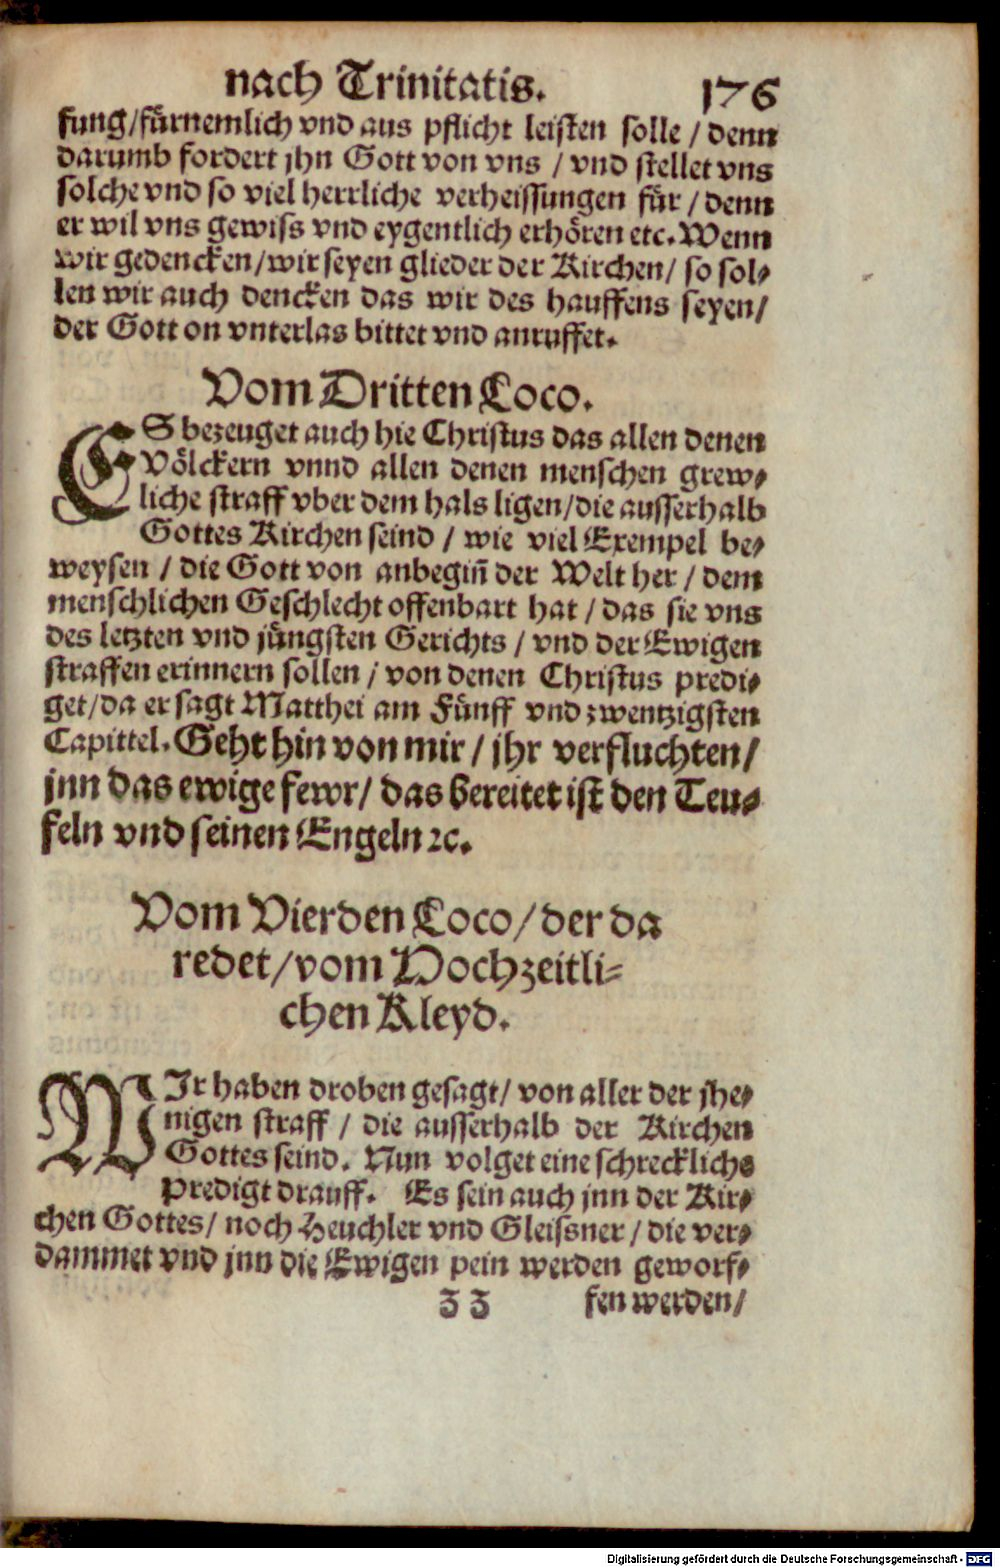 nach Trinitatis. 176
fung/fürnemlich vnd aus pflicht leisten solle / denn
darumb fordert jhn Gott von vns / vnd stellet vns
solche vnd so viel herrliche verheissungen für / denn
er wil vns gewiss vnd eygentlich erhören etc. Wenn
wir gedencken/wir seyen glieder der Kirchen/ so sol⸗
len wir auch dencken das wir des hauffens seyen/
der Gott on vnterlas bittet vnd anruffet.
Vom Dritten Loco.
ES bezeuget auch hie Christus das allen denen
Völckern vnnd allen denen menschen grew⸗
liche straff vber dem hals ligen/die ausserhalb
Gottes Kirchen seind / wie viel Exempel be⸗
weysen / die Gott von anbegiñ der Welt her / dem
menschlichen Geschlecht offenbart hat / das sie vns
des letzten vnd jüngsten Gerichts / vnd der Ewigen
straffen erinnern sollen / von denen Christus predi⸗
get/da er sagt Matthei am Fünff vnd zwentzigsten
Capittel. Geht hin von mir / jhr verfluchten/
jnn das ewige fewr/ das bereitet ist den Teu⸗
feln vnd seinen Engeln ꝛc.
Vom Vierden Loco/der da
redet/vom Hochzeitli⸗
chen Kleyd.
WIr haben droben gesagt/ von aller der jhe⸗
nigen straff / die ausserhalb der Kirchen
Gottes seind. Nun volget eine schreckliche
Predigt drauff. Es sein auch jnn der Kir⸗
chen Gottes/ noch Heuchler vnd Gleissner / die ver⸗
dammet vnd jnn die Ewigen pein werden geworf⸗
Zz fen werden/
Digitalisierung gefördert durch die Deutsche Forschungsgemeinschaft - DFG